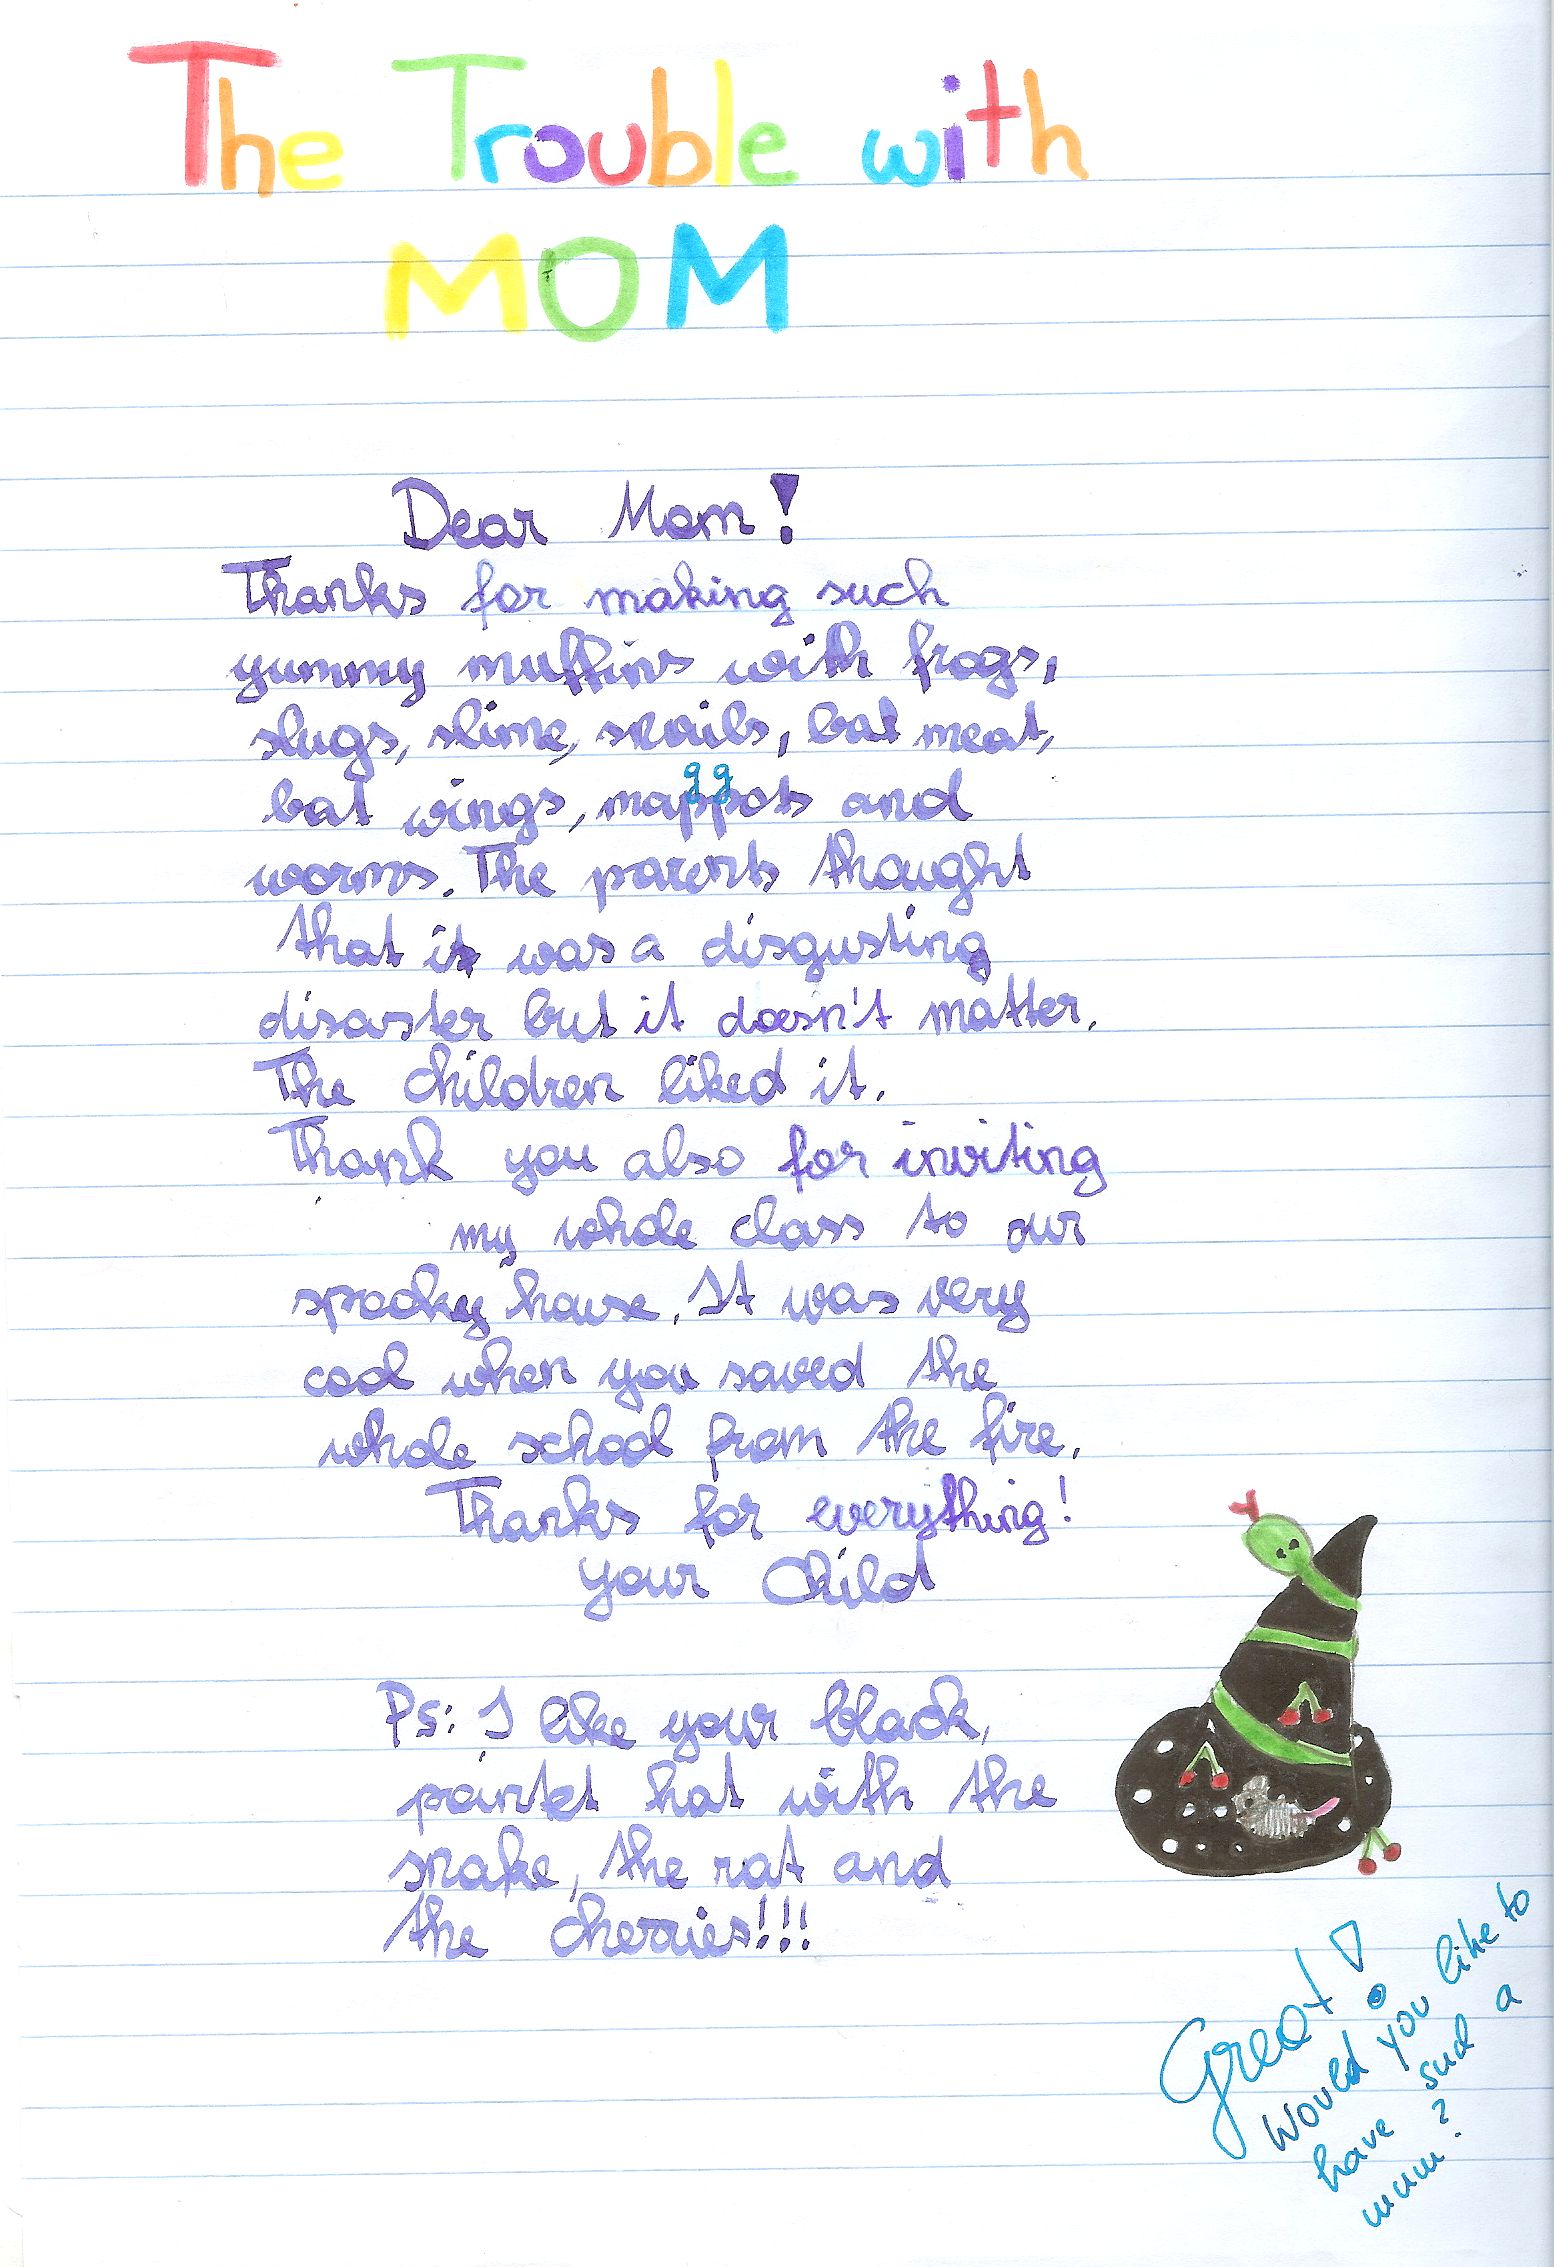 The Trouble with
MOM
Dear Mom!
Thanks for making such
yummy muffins with frogs,
slugs, slime, snails, bat meat,
bat wings, mappots and
gg
worms. The parents thought
that it was a disgusting
disaster but it doesn't matter.
The children liked it.
Thank you also for inviting
my whole class to our
spooky house. It was very
cool when you saved the
whole school from the fire.
Thanks for everything!
your Child
Ps: I like your black,
pointet hat with the
snake, the rat and
the cherries!!!
Great!
Would you like to
have such a
mum?